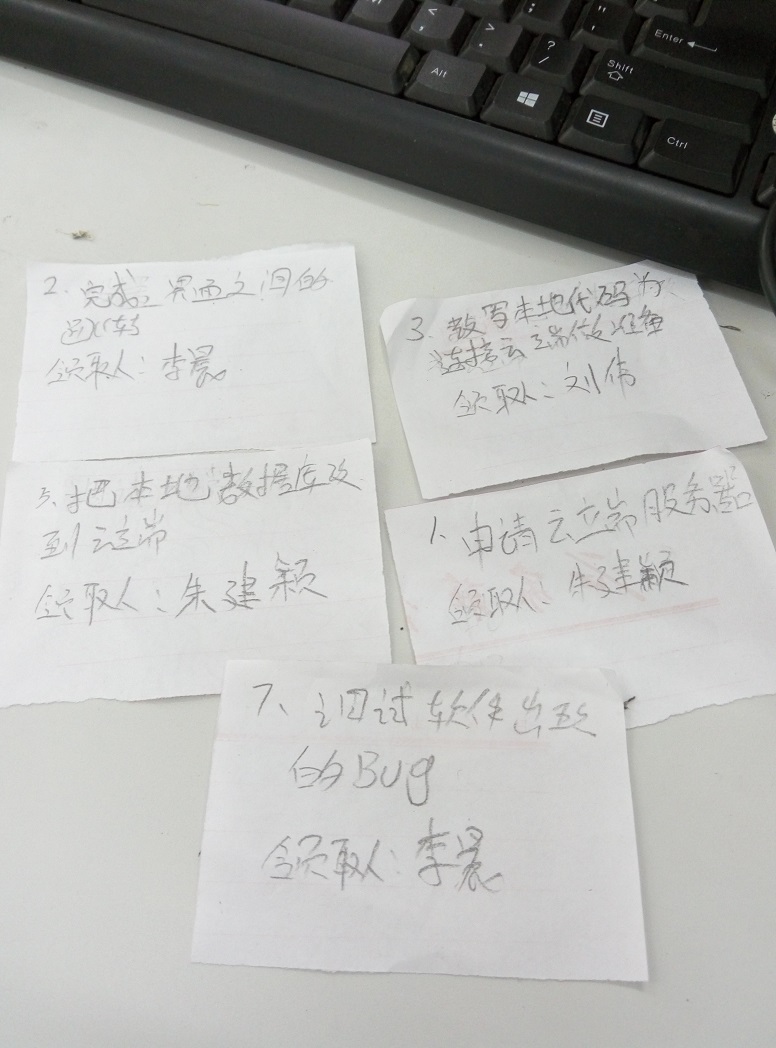 Enter
Shift
Alt
Ctrl
2、完成界面之间的
跳转
领取人：李晨
3、教写本地代码为
连接云端做准备
领取人：刘伟
5、把本地数据库改
到云端
领取人：朱建颖
1、申请云端服务器
领取人：朱建颖
7、调试软件出现
的Bug
领取人：李晨